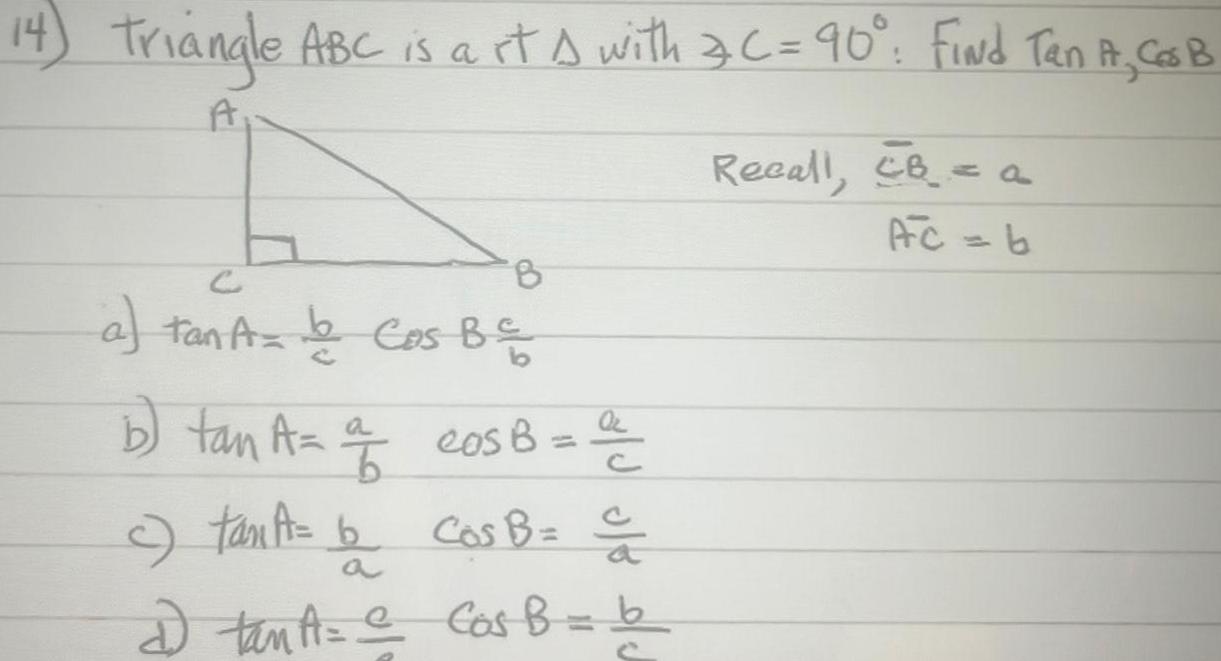 14) Triangle ABC is a rt Δ with ∡C = 90°. Find Tan A, Cos B
A
Recall, C̅B̅ = a
A̅C̅ = b
C B
a) tan A = b/c Cos B c/b
b) tan A = a/b cos B = a/c
c) tan A = b/a Cos B = c/a
d) tan A = c/ Cos B = b/c